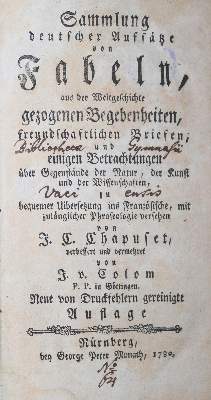 Sammlung
deutscher Aufsätze
von
Fabeln,
aus der Weltgeschichte
gezogenen Begebenheiten,
freundschaftlichen Briefen,
Bibliotheca und Gymnasii
einigen Betrachtungen
über Gegenstände der Natur, der Kunst
und der Wissenschaften,
zu
bequemer Uibersetzung ins Französische, mit
zulänglicher Phraseologie versehen
von
J. C. Chapuset,
verbessert und vermehret
von
J. v. Colom
P. P. in Göttingen.
Neue von Druckfehlern gereinigte
Auflage
Nürnberg,
bey George Peter Monath, 1780.
No